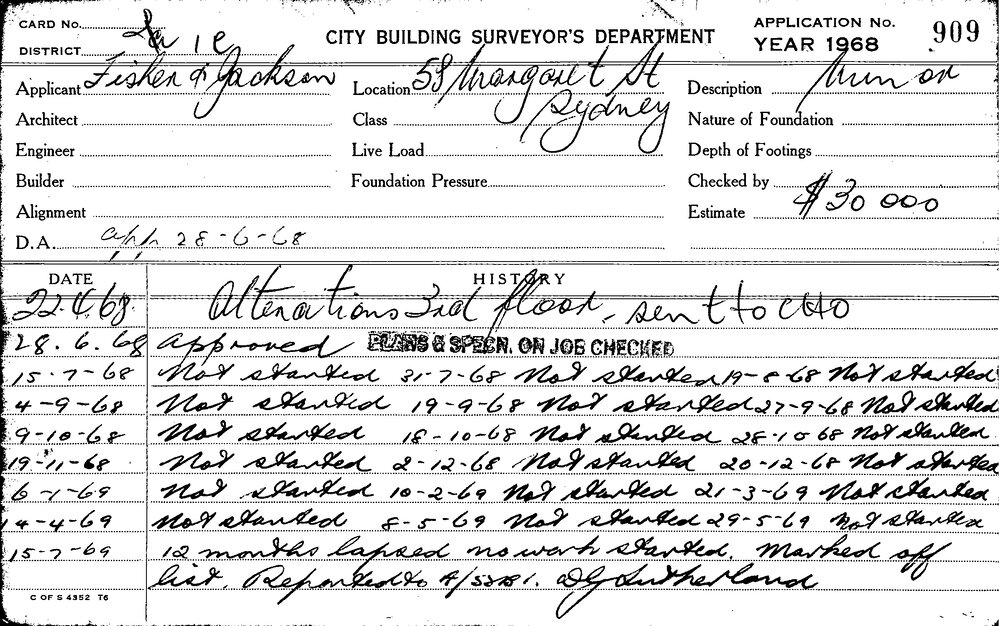 CARD No. APPLICATION No. 909
DISTRICT 1c CITY BUILDING SURVEYOR'S DEPARTMENT YEAR 1968
Applicant Fisher & Jackson Location 58 Margaret St Description
Architect Class Sydney Nature of Foundation
Engineer Live Load Depth of Footings
Builder Foundation Pressure Checked by
Alignment Estimate $30 000
D.A. app 28-6-68
DATE HISTORY
22.4.68. Alterations 3rd floor, sent to CHO
28.6.68 Approved PLANS & SPECN. ON JOB CHECKED
15-7-68 Not started 31-7-68 Not started 19-8-68 Not started
4-9-68 Not started 19-9-68 Not started 27-9-68 Not started
9-10-68 Not started 18-10-68 Not started 28-10 68 Not started.
19-11-68 Not started 2-12-68 Not started 20-12-68 Not started
6-1-69 Not started 10-2-69 Not started 21-3-69 Not started
14-4-69 Not started 8-5-69 Not started 29-5-69 Not started
15-7-69 12 months lapsed no work started. Marked off
list. Reported to DG Sutherland
C OF S 4352 T6